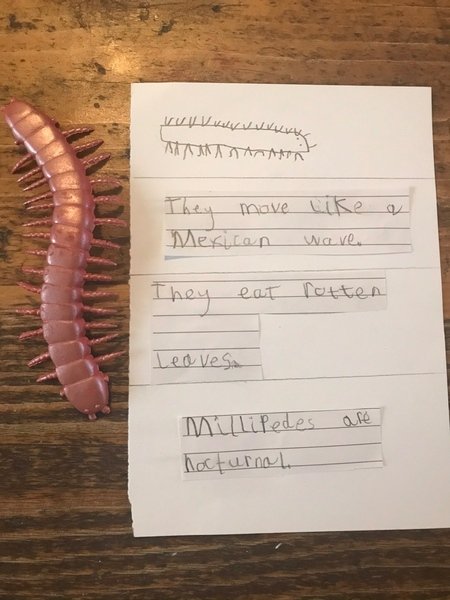 They move like a
Mexican wave.
They eat rotten
leaves.
Millipedes are
nocturnal.